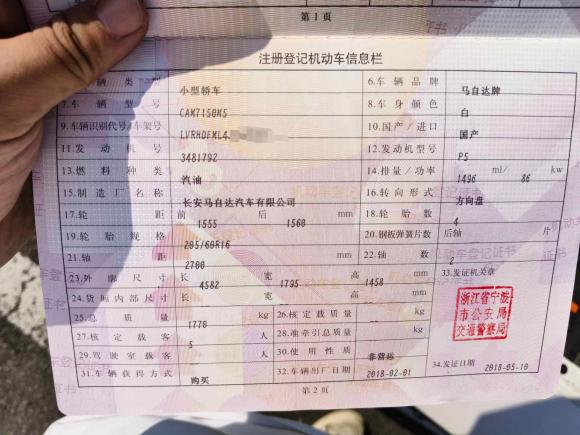 第1页
注册登记机动车信息栏
车辆类型 小型轿车 6.车辆品牌 马自达牌
7.车辆型号 CAM7150M5 8.车身颜色 白
9.车辆识别代号/车架号 LVRHDFML4 10.国产/进口 国产
11.发动机号 3481792 12.发动机型号 P5
13.燃料种类 汽油 14.排量/功率 1496 ml/ 86 kw
15.制造厂名称 长安马自达汽车有限公司 16.转向形式 方向盘
17.轮距 前 1555 后 1560 mm 18.轮胎数 4
19.轮胎规格 205/60R16 20.钢板弹簧片数 后轴 片
21.轴距 2700 mm 22.轴数 2
23.外廓尺寸 长 4582 宽 1795 高 1458 mm 33.发证机关章
24.货厢内部尺寸 长 宽 高 mm
浙江省宁波
市公安局
交通警察局
25.总质量 1770 kg 26.核定载质量 kg
27.核定载客 5 人 28.准牵引总质量 kg
29.驾驶室载客 人 30.使用性质 非营运
31.车辆获得方式 购买 32.车辆出厂日期 2018-02-01 34.发证日期 2018-05-10
第2页